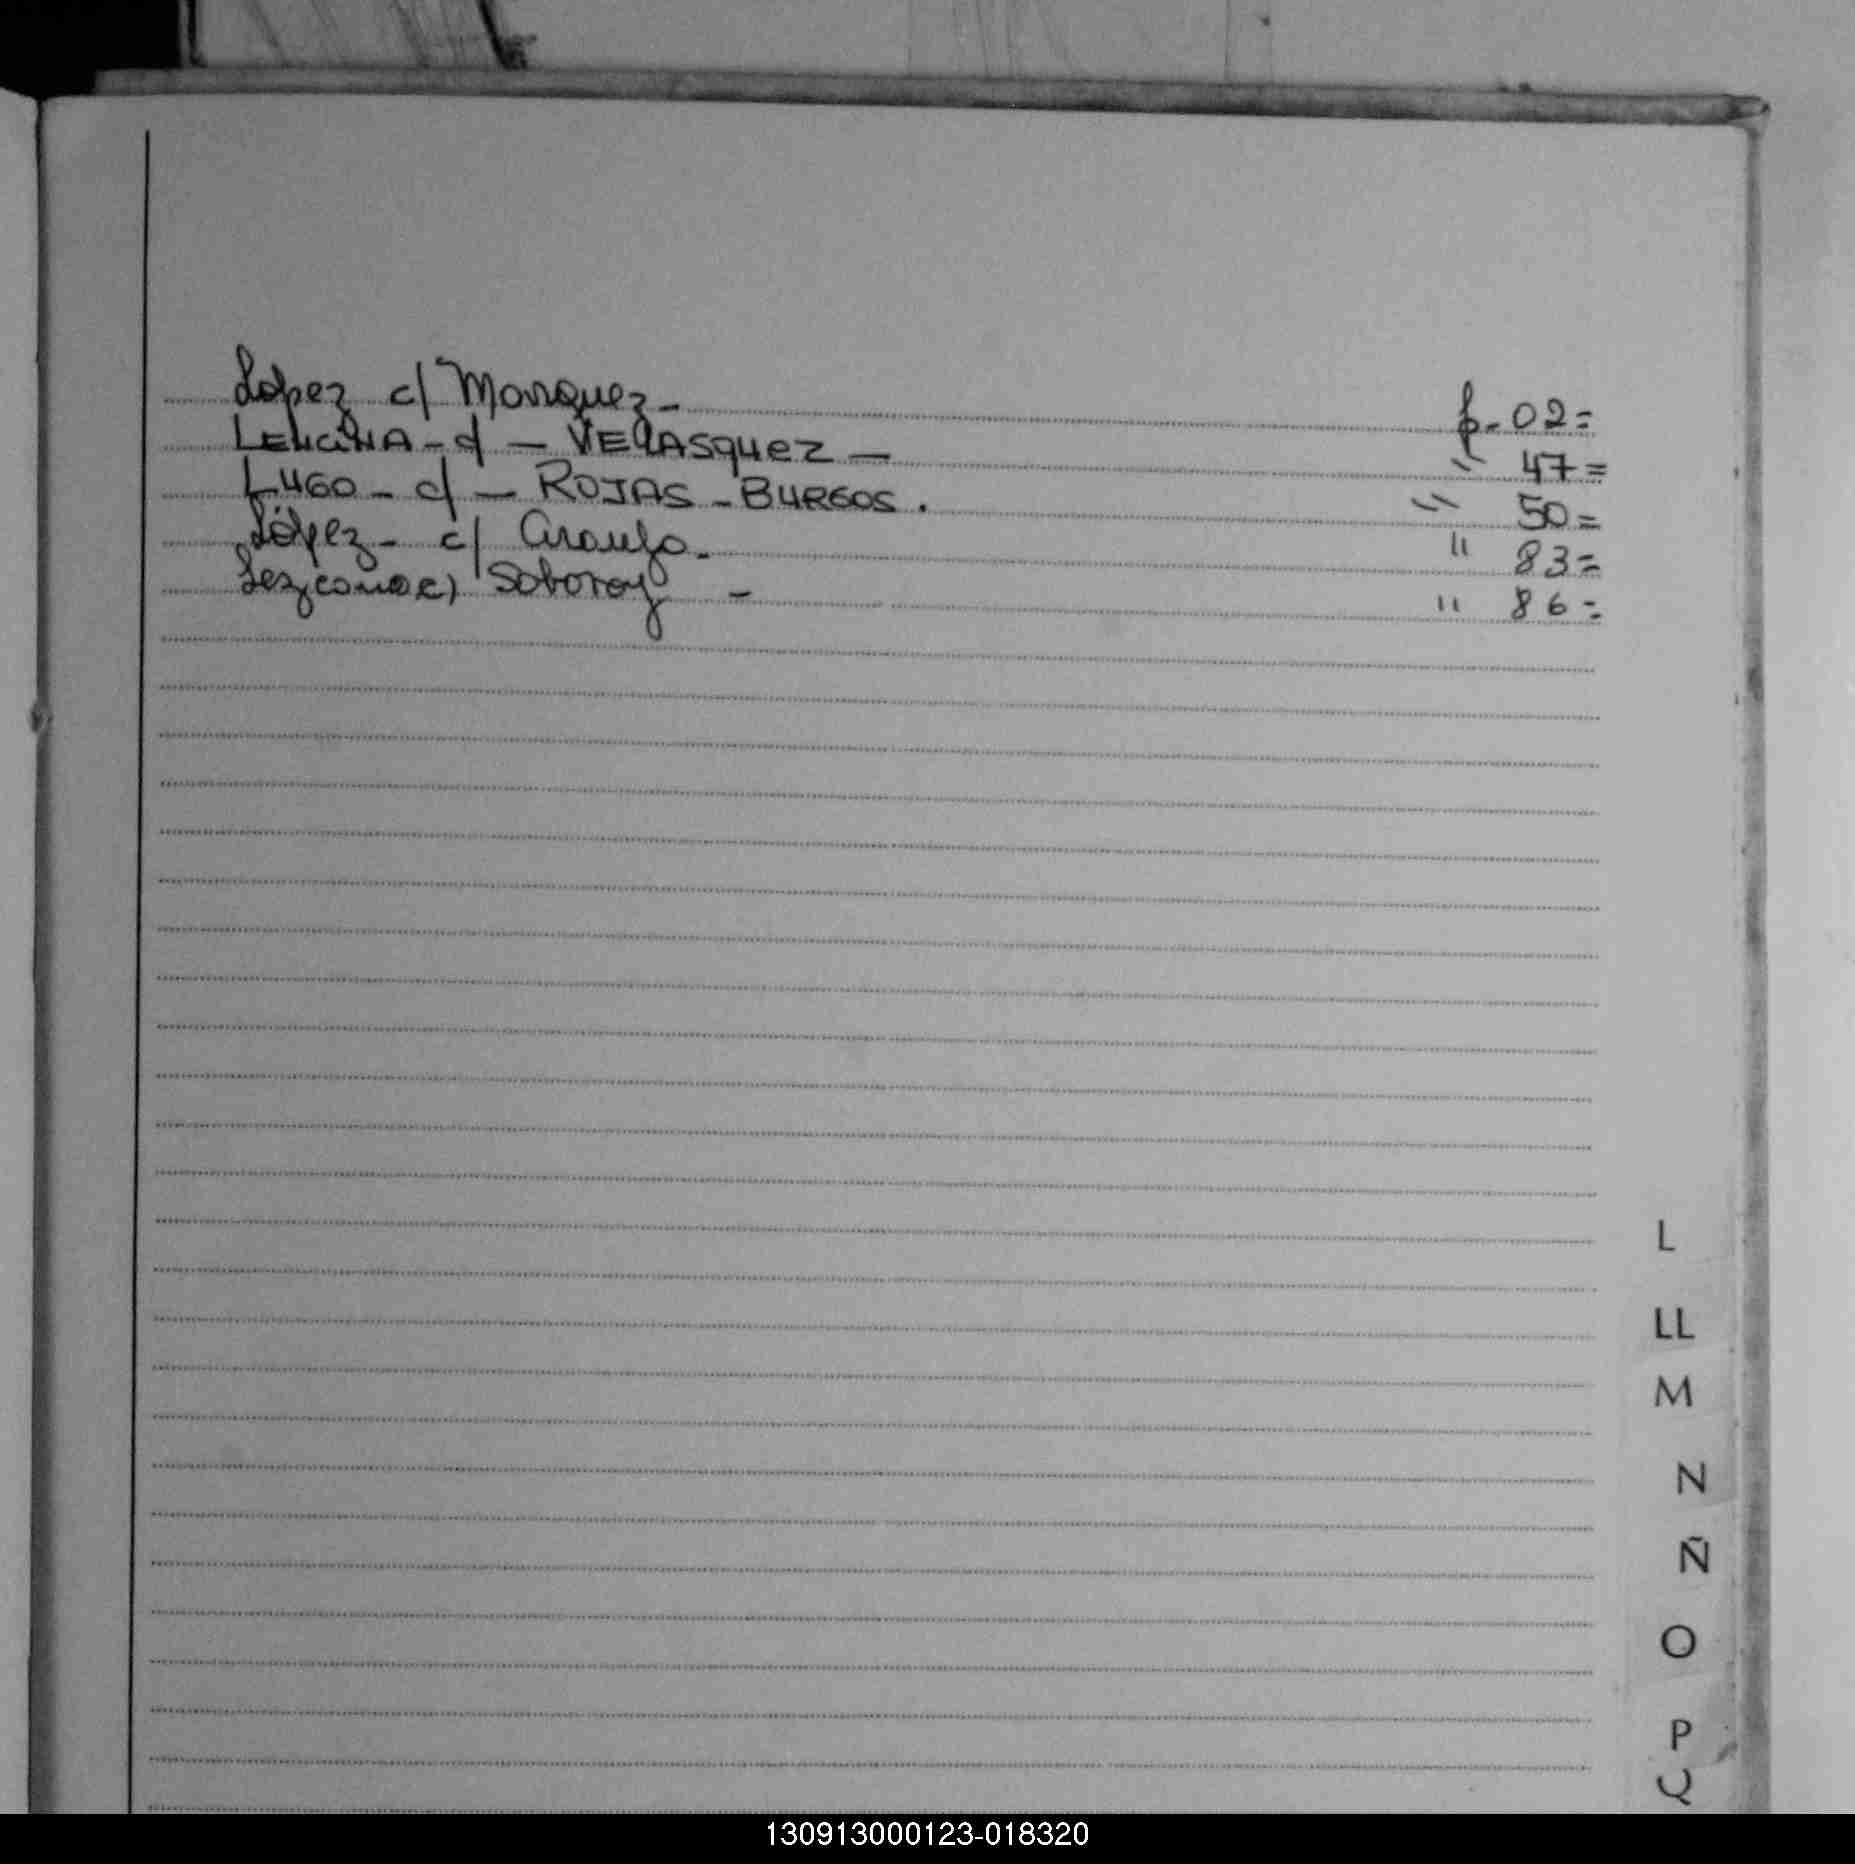 López c/ Marquez - p. 02=
LENCINA - c/ - VELASquez - " 47=
LUGO - c/ - ROJAS - BURGOS. " 50=
López - c/ Araujo. " 83=
Lezcano c/ Soboroy - " 86=
L
LL
M
N
Ñ
O
P
Q
130913000123-018320